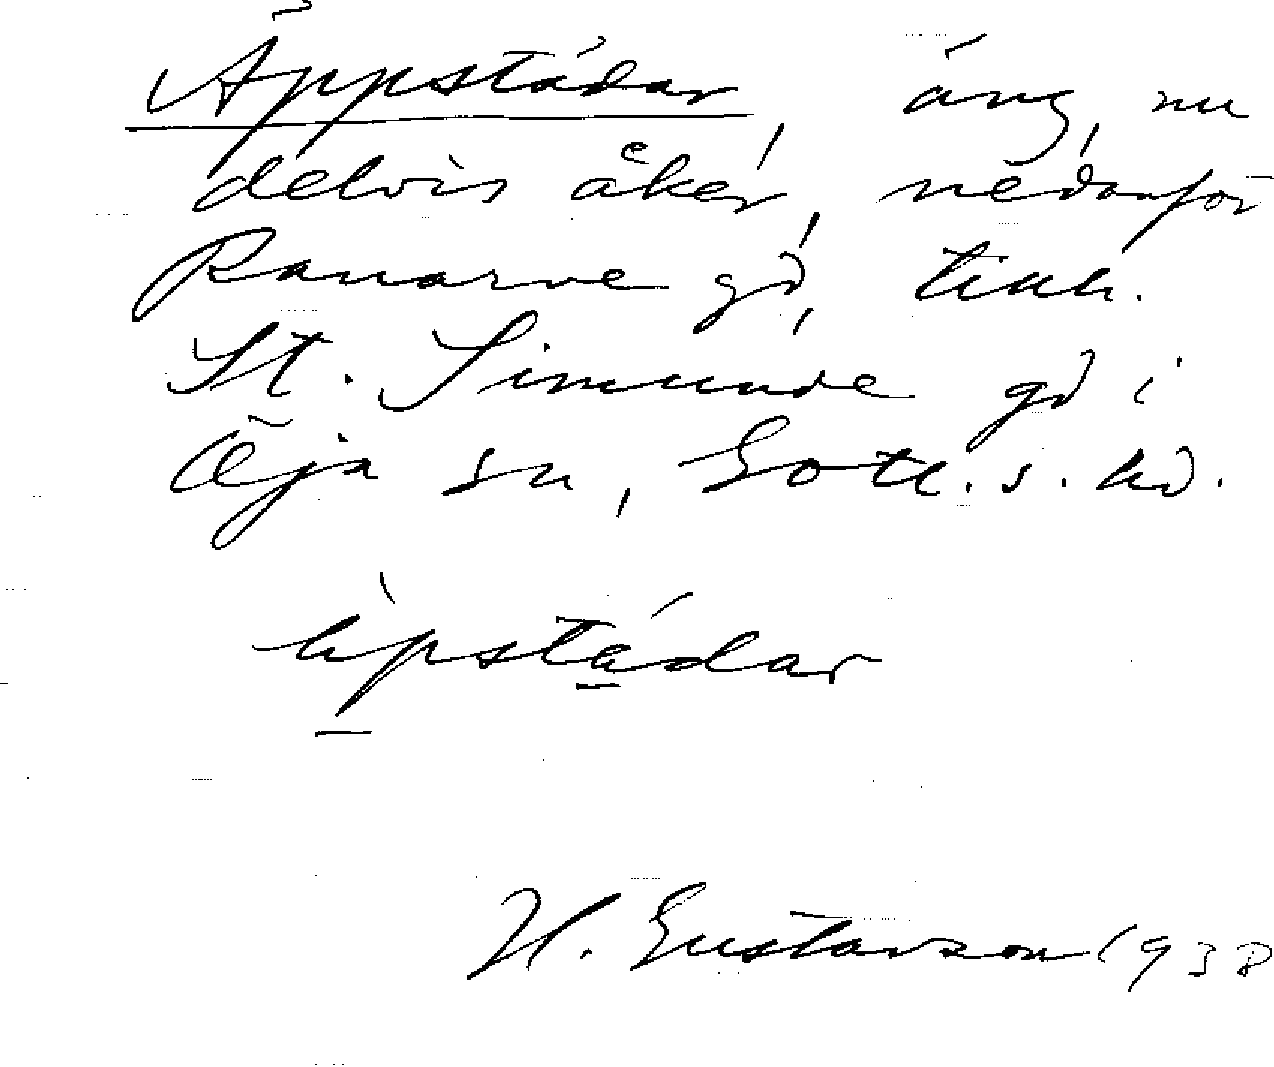 Äppstädar, äng, nu
delvis åker, nedanför
Ranarve gd, tillh.
St. Simunde gd i
Öja sn, Gotl. s. hd.
äpstædar
H. Gustavson 1938